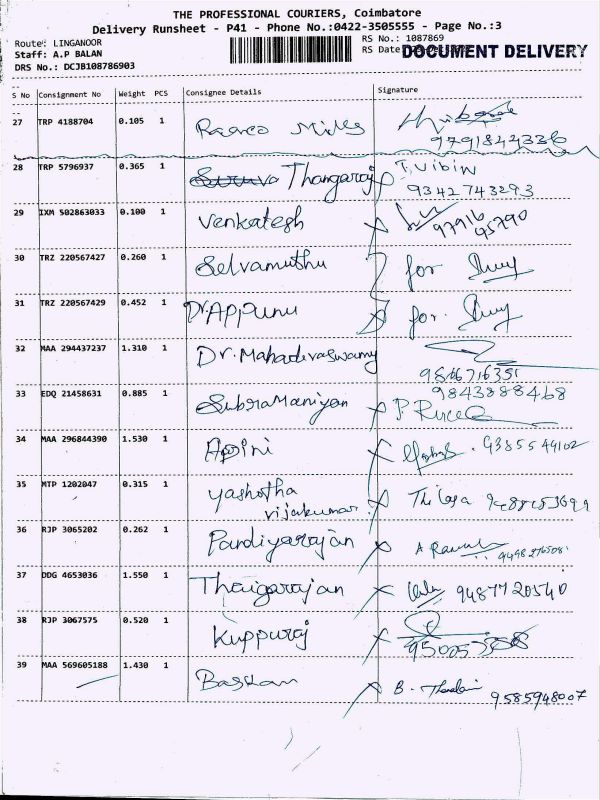 THE PROFESSIONAL COURIERS, Coimbatore
Delivery Runsheet - P41 - Phone No.:0422-3505555 - Page No.:3
Route: LINGANOOR RS No.: 1087869
Staff: A.P BALAN RS Date: DOCUMENT DELIVERY
DRS No.: DCJB108786903
S No Consignment No Weight PCS Consignee Details Signature
27 TRP 4188704 0.105 1 Mills
9791842336
28 TRP 5796937 0.365 1 Thangaraj T. Vibin
9342743293
29 IXM 502863033 0.100 1 Venkatesh 97916
95790
30 TRZ 220567427 0.260 1 Selvamuthu for
31 TRZ 220567429 0.452 1 Dr. Appunu for.
32 MAA 294437237 1.310 1 Dr. Mahadevaswamy
9843388468
33 EDQ 21458631 0.885 1 Subramaniyan
34 MAA 296844390 1.530 1 9385549102
35 MTP 1202047 0.315 1 Yashotha
vijakumar
36 RJP 3065202 0.262 1 Pandiyarajan A
37 DDG 4653036 1.550 1 Thaigarajan 9487720540
38 RJP 3067575 0.520 1 Kuppuraj
39 MAA 569605188 1.430 1 Baskan B.
9585948007